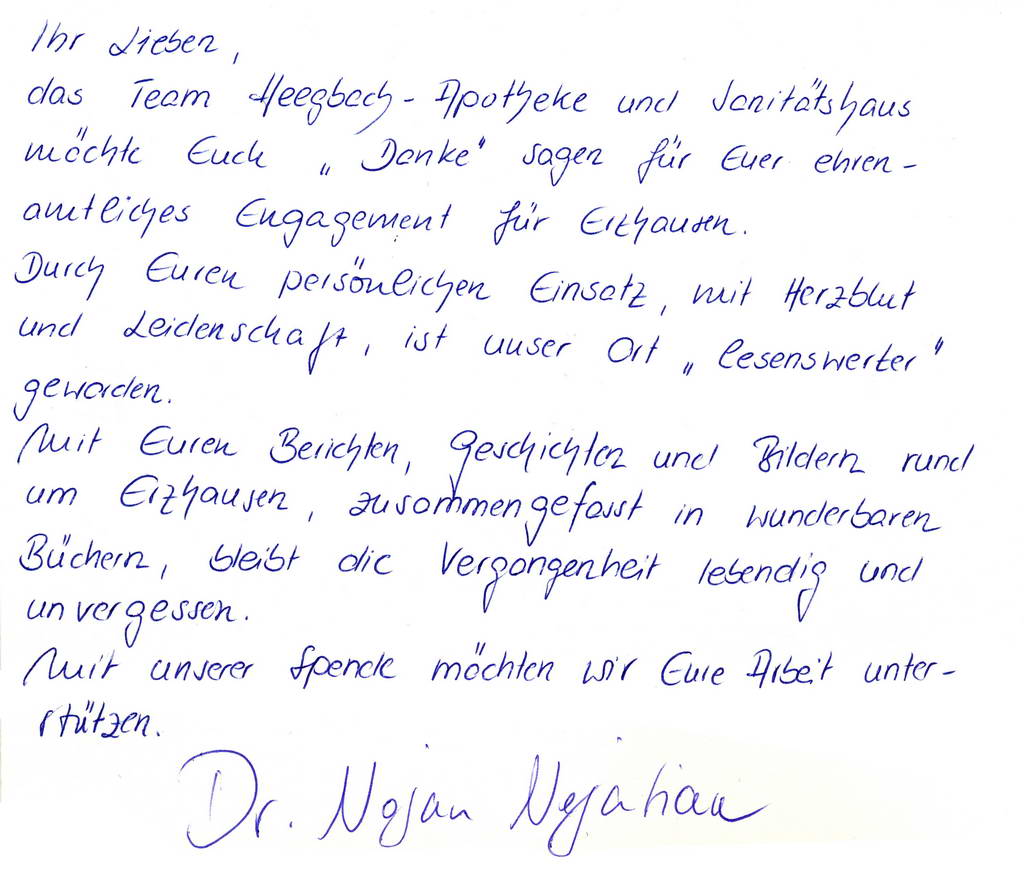 Ihr Lieben,
das Team Heegbach-Apotheke und Sanitätshaus
möchte Euch "Danke" sagen für Euer ehren-
amtliches Engagement für Erzhausen.
Durch Euren persönlichen Einsatz, mit Herzblut
und Leidenschaft, ist unser Ort "lesenswerter"
geworden.
Mit Euren Berichten, Geschichten und Bildern rund
um Erzhausen, zusammengefasst in wunderbaren
Büchern, bleibt die Vergangenheit lebendig und
unvergessen.
Mit unserer Spende möchten wir Eure Arbeit unter-
stützen.
Dr. Nojan Nejatian